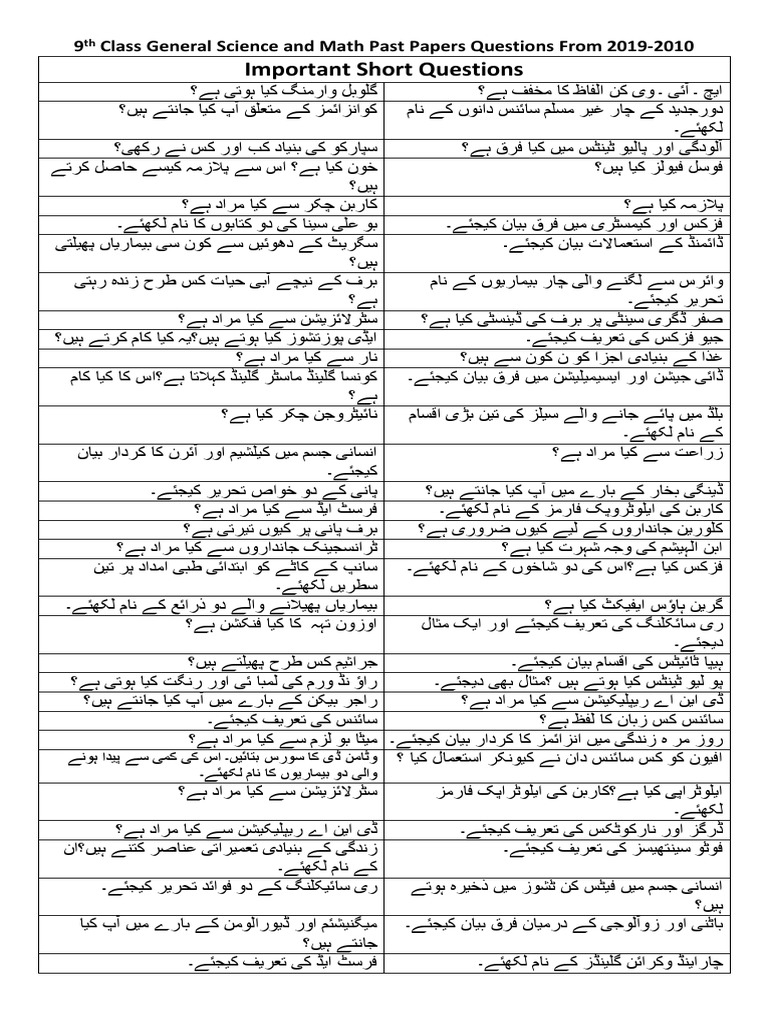 9th Class General Science and Math Past Papers Questions From 2019-2010
Important Short Questions
ایچ ۔ آئی ۔ وی کن الفاظ کا مخفف ہے؟
گلوبل وارمنگ کیا ہوتی ہے؟
دورجدید کے چار غیر مسلم سائنس دانوں کے نام
لکھئے۔
کوانزائمز کے متعلق آپ کیا جانتے ہیں؟
آلودگی اور پالیو ٹینٹس میں کیا فرق ہے؟
سپارکو کی بنیاد کب اور کس نے رکھی؟
فوسل فیولز کیا ہیں؟
خون کیا ہے؟ اس سے پلازمہ کیسے حاصل کرتے
ہیں؟
پلازمہ کیا ہے؟
کاربن چکر سے کیا مراد ہے؟
فزکس اور کیمسٹری میں فرق بیان کیجئے۔
بو علی سینا کی دو کتابوں کا نام لکھئے۔
ڈائمنڈ کے استعمالات بیان کیجئے۔
سگریٹ کے دھوئیں سے کون سی بیماریاں پھیلتی
ہیں؟
وائرس سے لگنے والی چار بیماریوں کے نام
تحریر کیجئے۔
برف کے نیچے آبی حیات کس طرح زندہ رہتی
ہے؟
صفر ڈگری سینٹی پر برف کی ڈینسٹی کیا ہے؟
سٹرلائزیشن سے کیا مراد ہے؟
جیو فزکس کی تعریف کیجئے۔
ایڈی پوزٹشوز کیا ہوتے ہیں؟یہ کیا کام کرتے ہیں؟
غذا کے بنیادی اجزا کو ن کون سے ہیں؟
نار سے کیا مراد ہے؟
ڈائی جیشن اور ایسیمیلیشن میں فرق بیان کیجئے۔
کونسا گلینڈ ماسٹر گلینڈ کہلاتا ہے؟اس کا کیا کام
ہے؟
بلڈ میں پائے جانے والے سیلز کی تین بڑی اقسام
کے نام لکھئے۔
نائیٹروجن چکر کیا ہے؟
زراعت سے کیا مراد ہے؟
انسانی جسم میں کیلشیم اور آئرن کا کردار بیان
کیجئے۔
ڈینگی بخار کے بارے میں آپ کیا جانتے ہیں؟
پانی کے دو خواص تحریر کیجئے۔
کاربن کی ایلوٹروپک فارمز کے نام لکھئے۔
فرسٹ ایڈ سے کیا مراد ہے؟
کلورین جانداروں کے لیے کیوں ضروری ہے؟
برف پانی پر کیوں تیرتی ہے؟
ابن الہیشم کی وجہ شہرت کیا ہے؟
ٹرانسجینک جانداروں سے کیا مراد ہے؟
فزکس کیا ہے؟اس کی دو شاخوں کے نام لکھئے۔
سانپ کے کاٹے کو ابتدائی طبی امداد پر تین
سطریں لکھئے۔
گرین ہاؤس ایفیکٹ کیا ہے؟
بیماریاں پھیلانے والے دو ذرائع کے نام لکھئے۔
ری سائکلنگ کی تعریف کیجئے اور ایک مثال
دیجئے۔
اوزون تہہ کا کیا فنکشن ہے؟
ہیپا ٹائیٹس کی اقسام بیان کیجئے۔
جراثیم کس طرح پھیلتے ہیں؟
پو لیو ٹینٹس کیا ہوتے ہیں ؟مثال بھی دیجئے۔
راؤ نڈ ورم کی لمبا ئی اور رنگت کیا ہوتی ہے؟
ڈی این اے ریپلیکیشن سے کیا مراد ہے؟
راجر بیکن کے بارے میں آپ کیا جانتے ہیں؟
سائنس کس زبان کا لفظ ہے؟
سائنس کی تعریف کیجئے۔
روز مر ہ زندگی میں انزائمز کا کردار بیان کیجئے۔
میٹا بو لزم سے کیا مراد ہے؟
افیون کو کس سائنس دان نے کیونکر استعمال کیا ؟
وٹامن ڈی کا سورس بتائیں۔ اس کی کمی سے پیدا ہونے
والی دو بیماریوں کا نام لکھئے۔
ایلوٹراپی کیا ہے؟کاربن کی ایلوٹراپک فارمز
لکھئے۔
سٹرلائزیشن سے کیا مراد ہے؟
ڈرگز اور نارکوٹکس کی تعریف کیجئے۔
ڈی این اے ریپلیکیشن سے کیا مراد ہے؟
فوٹو سینتھیسز کی تعریف کیجئے۔
زندگی کے بنیادی تعمیراتی عناصر کتنے ہیں؟ان
کے نام لکھئے۔
انسانی جسم میں فیٹس کن ٹشوز میں ذخیرہ ہوتے
ہیں؟
ری سائیکلنگ کے دو فوائد تحریر کیجئے۔
باٹنی اور زوآلوجی کے درمیان فرق بیان کیجئے۔
میگنیشئم اور ڈیورالومن کے بارے میں آپ کیا
جانتے ہیں؟
چاراینڈ وکرائن گلینڈز کے نام لکھئے۔
فرسٹ ایڈ کی تعریف کیجئے۔